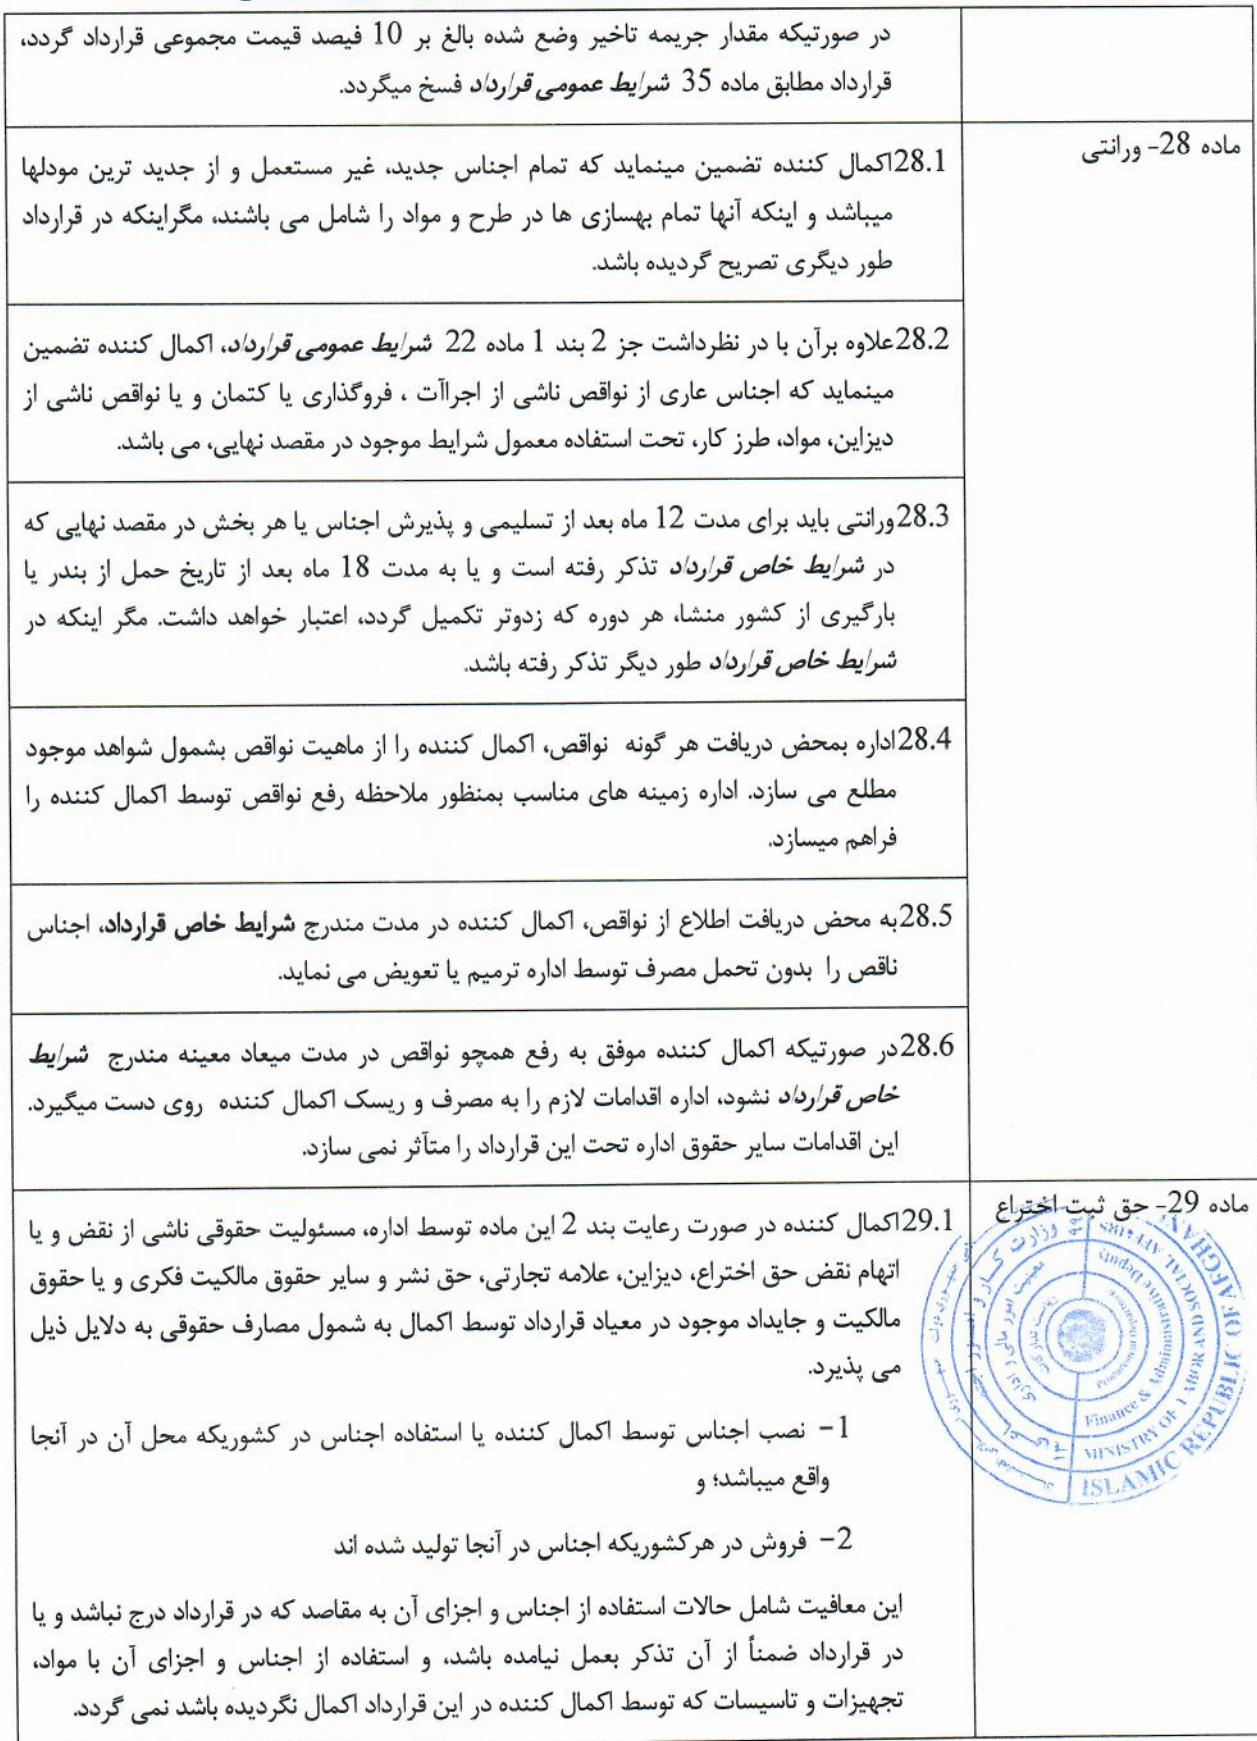 در صورتیکه مقدار جریمه تاخیر وضع شده بالغ بر 10 فیصد قیمت مجموعی قرارداد گردد،
قرارداد مطابق ماده 35 شرایط عمومی قرارداد فسخ میگردد.
ماده 28- ورانتی
28.1اکمال کننده تضمین مینماید که تمام اجناس جدید، غیر مستعمل و از جدید ترین مودلها
میباشد و اینکه آنها تمام بهسازی ها در طرح و مواد را شامل می باشند، مگراینکه در قرارداد
طور دیگری تصریح گردیده باشد.
28.2علاوه برآن با در نظرداشت جز 2 بند 1 ماده 22 شرایط عمومی قرارداد، اکمال کننده تضمین
مینماید که اجناس عاری از نواقص ناشی از اجراآت ، فروگذاری یا کتمان و یا نواقص ناشی از
دیزاین، مواد، طرز کار، تحت استفاده معمول شرایط موجود در مقصد نهایی، می باشد.
28.3ورانتی باید برای مدت 12 ماه بعد از تسلیمی و پذیرش اجناس یا هر بخش در مقصد نهایی که
در شرایط خاص قرارداد تذکر رفته است و یا به مدت 18 ماه بعد از تاریخ حمل از بندر یا
بارگیری از کشور منشا، هر دوره که زدوتر تکمیل گردد، اعتبار خواهد داشت. مگر اینکه در
شرایط خاص قرارداد طور دیگر تذکر رفته باشد.
28.4اداره بمحض دریافت هر گونه نواقص، اکمال کننده را از ماهیت نواقص بشمول شواهد موجود
مطلع می سازد. اداره زمینه های مناسب بمنظور ملاحظه رفع نواقص توسط اکمال کننده را
فراهم میسازد.
28.5به محض دریافت اطلاع از نواقص، اکمال کننده در مدت مندرج شرایط خاص قرارداد، اجناس
ناقص را بدون تحمل مصرف توسط اداره ترمیم یا تعویض می نماید.
28.6در صورتیکه اکمال کننده موفق به رفع همچو نواقص در مدت میعاد معینه مندرج شرایط
خاص قرارداد نشود، اداره اقدامات لازم را به مصرف و ریسک اکمال کننده روی دست میگیرد.
این اقدامات سایر حقوق اداره تحت این قرارداد را متآثر نمی سازد.
ماده 29- حق ثبت اختراع
29.1اکمال کننده در صورت رعایت بند 2 این ماده توسط اداره، مسئولیت حقوقی ناشی از نقض و یا
اتهام نقض حق اختراع، دیزاین، علامه تجارتی، حق نشر و سایر حقوق مالکیت فکری و یا حقوق
مالکیت و جایداد موجود در معیاد قرارداد توسط اکمال به شمول مصارف حقوقی به دلایل ذیل
می پذیرد.
1- نصب اجناس توسط اکمال کننده یا استفاده اجناس در کشوریکه محل آن در آنجا
واقع میباشد؛ و
2- فروش در هرکشوریکه اجناس در آنجا تولید شده اند
این معافیت شامل حالات استفاده از اجناس و اجزای آن به مقاصد که در قرارداد درج نباشد و یا
در قرارداد ضمناً از آن تذکر بعمل نیامده باشد، و استفاده از اجناس و اجزای آن با مواد،
تجهیزات و تاسیسات که توسط اکمال کننده در این قرارداد اکمال نگردیده باشد نمی گردد.
ISLAMIC REPUBLIC OF AFGHAN
MINISTRY OF LABOR AND SOCIAL AFFAIRS
Finance & Administrative Deputy
وزارت کار و امور
معینیت امور مالی و اداری
ریاست تدارکات